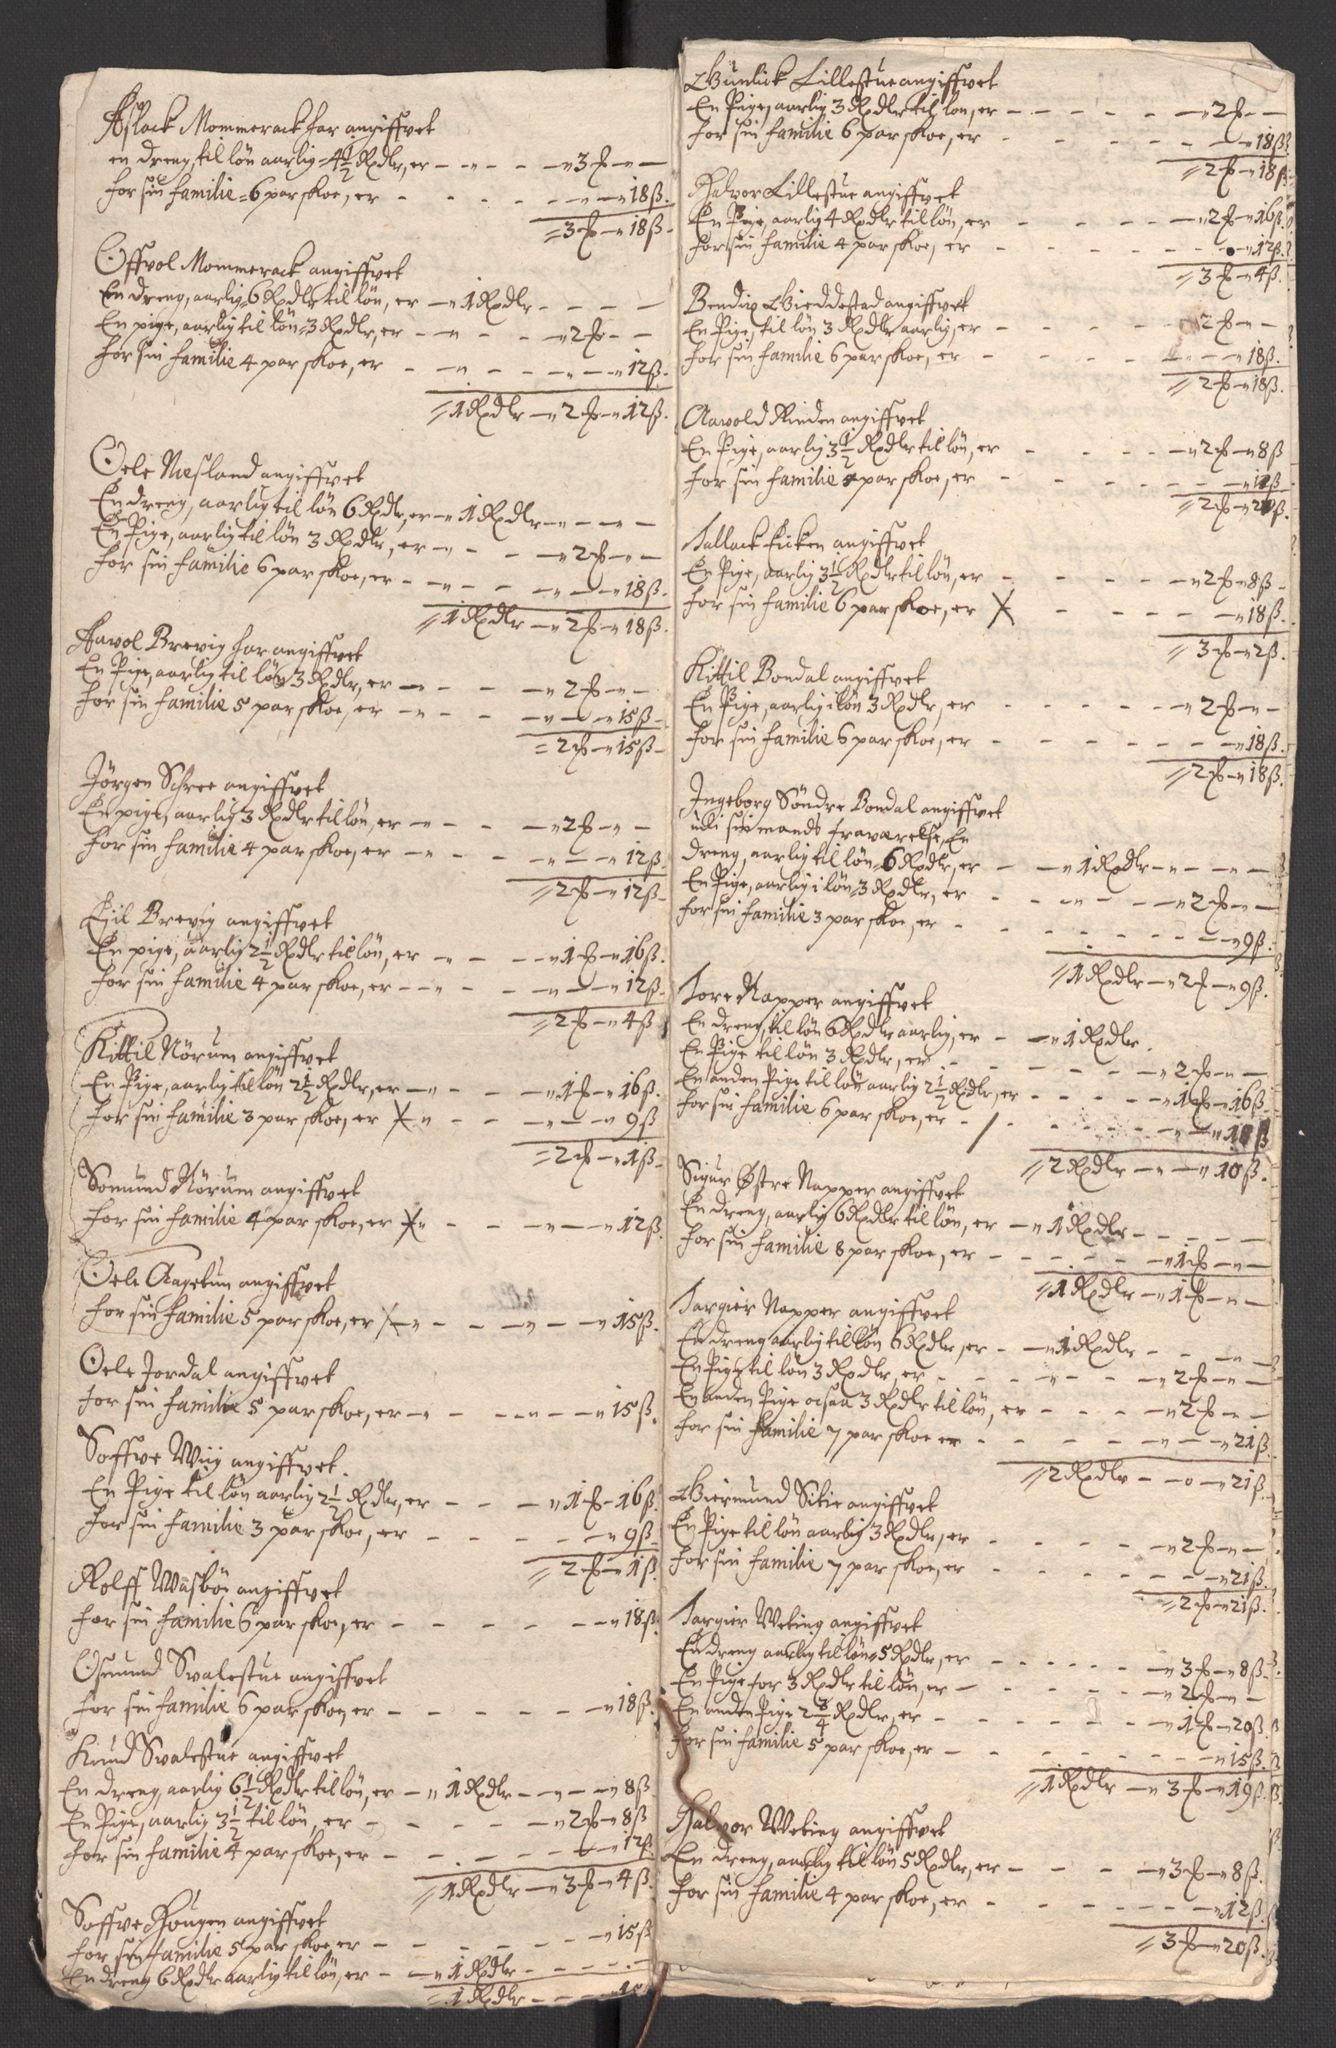 Aslack Mommerack har angiffvet
en dreng, til løn aarlig 4½ Rdlr, er - - - 3 # - -
for sin familie 6 par skoe, er - - - - 18 ß.
3 # - 18 ß
Offvol Mommerack angiffvet
En dreng, aarlig 6 Rdlr til løn, er - 1 Rdlr - - - -
En pige, aarlig til løn 3 Rdlr, er - - - 2 # - -
for sin familie 4 par skoe, er - - - - 12 ß.
1 Rdlr - 2 # - 12 ß.
Oele Nesland angiffvet
En dreng, aarlig til løn 6 Rdlr, er - 1 Rdlr - - - -
En Pige, aarlig til løn 3 Rdlr, er - - - 2 # - -
for sin familie 6 par skoe, er - - - - 18 ß.
1 Rdlr - 2 # - 18 ß.
Aavol Brevig har angiffvet
En Pige, aarlig til løn 3 Rdlr, er - - - 2 # - -
for sin familie 5 par skoe, er - - - - 15 ß -
2 # - 15 ß -
Jørgen Schree angiffvet
En pige, aarlig 3 Rdlr til løn, er - - - 2 # - -
for sin familie 4 par skoe, er - - - - 12 ß
2 # - 12 ß -
Eiil Brevig angiffvet
En pige, aarlig 2½ Rdlr til løn, er - - - 1 # - 16 ß.
for sin familie 4 par skoe, er - - - - 12 ß -
2 # - 4 ß
Kittil Nörum angiffvet
En Pige, aarlig til løn 2½ Rdlr, er - - - 1 # - 16 ß.
for sin familie 3 par skoe, er X - - - - 9 ß
2 # - 1 ß -
Somund Nörum angiffvet
for sin familie 4 par skoe, er X - - - - 12 ß.
Oele Aagetun angiffvet
for sin familie 5 par skoe, er X - - - - 15 ß.
Oele Jordal angiffvet
for sin familie 5 par skoe, er - - - - 15 ß.
Soffve Wiig angiffvet.
En Pige til løn aarlig 2½ Rdlr, er - - - 1 # - 16 ß
for sin familie 3 par skoe, er - - - - 9 ß
2 # - 1 ß
Rolff Wasböe angiffvet
for sin familie 6 par skoe, er - - - - 18 ß.
Osmund Swalestue angiffvet
for sin familie 6 par skoe, er - - - - 18 ß.
Knud Swalestue angiffvet
En dreng, aarlig 6½ Rdlr til løn, er - 1 Rdlr - - - 8 ß
En Pige, aarlig 3½ til løn, er - - - 2 # - 8 ß
for sin familie 4 par skoe, er - - - - 12 ß.
1 Rdlr - 3 # - 4 ß.
Soffve Hougen angiffvet
for sin familie 5 par skoe, er - - - - 15 ß
En dreng 6 Rdlr aarlig til løn, er - 1 Rdlr - - - -
1 Rdlr - - - 15
Gunlick Lillestue angiffvet
En Pige, aarlig 3 Rdlr til løn, er - - - 2 # - -
for sin familie 6 par skoe, er - - - - 18 ß.
2 # - 18 ß -
Halvor Lillestue angiffvet
En Pige, aarlig 4 Rdlr til løn, er - - - 2 # - 16 ß.
for sin familie 4 par skoe, er - - - - 12 ß.
3 # - 4 ß.
Bendix Gieddestad angiffvet
En Pige, til løn 3 Rdlr aarlig, er - - - 2 # - -
for sin familie 6 par skoe, er - - - - 18 ß.
2 # - 18 ß.
Aavold Rinden angiffvet
En Pige, aarlig 3½ Rdlr til løn, er - - - 2 # - 8 ß
for sin familie 4 par skoe, er - - - - 12 ß
2 # - 20 ß.
Tallack Ficken angiffvet
En Pige, aarlig 3½ Rdlr til løn, er - - - 2 # - 8 ß -
for sin familie 6 par skoe, er X - - - - 18 ß.
3 # - 2 ß.
Kittil Bondal angiffvet
En Pige, aarlig i løn 3 Rdlr, er - - - 2 # - -
for sin familie 6 par skoe, er - - - - 18 ß.
2 # - 18 ß.
Ingeborg Söndre Bondal angiffvet
udi sin mands fraværelse, En
dreng, aarlig til løn 6 Rdlr, er - - 1 Rdlr - - - -
En Pige, aarlig i løn 3 Rdlr, er - - - 2 # - -
for sin familie 3 par skoe, er - - - - 9 ß.
1 Rdlr - 2 # - 9 ß.
Tore Napper angiffvet
En dreng, til løn 6 Rdlr aarlig, er - - 1 Rdlr.
En Pige til løn 3 Rdlr, er - - - 2 # - -
En anden Pige til løn aarlig 2½ Rdlr, er - - - 1 # - 16 ß
for sin familie 6 par skoe, er - / - - - 18 ß
2 Rdlr - - - 10 ß.
Sigur Østre Napper angiffvet
En dreng, aarlig 6 Rdlr til løn, er - 1 Rdlr - - - -
for sin familie 8 par skoe, er - - - - 1 # - -
1 Rdlr - 1 # - -
Targier Napper angiffvet
En dreng aarlig til løn 6 Rdlr, er - 1 Rdlr - - - -
En Pige til løn 3 Rdlr, er - - - 2 # - -
En anden Pige ocsaa 3 Rdlr til løn, er - - - 2 # - -
for sin familie 7 par skoe er - - - - 21 ß.
2 Rdlr - 0 - 21 ß.
Giermund Sitie angiffvet
En Pige til løn aarlig 3 Rdlr, er - - - 2 # - -
for sin familie 7 par skoe, er - - - - 21 ß.
2 # - 21 ß.
Targier Weting angiffvet
En dreng aarlig til løn 5 Rdlr, er - - - 3 # - 8 ß.
En Pige for 3 Rdlr til løn, er - - - 2 # - -
En anden Pige 2¾ Rdlr, er - - - 1 # - 20 ß.
for sin familie 5 par skoe, er - - - - 15 ß.
1 Rdlr - 3 # - 19 ß.
Halvor Weting angiffvet
En dreng, aarlig til løn 5 Rdlr, er - - - 3 # - 8 ß.
for sin familie 4 par skoe, er - - - - 12 ß.
3 # - 20 ß.